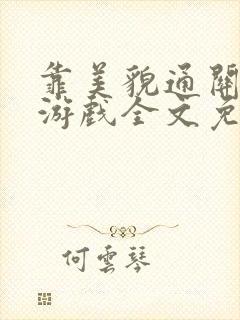 靠美貌通关
游戏全文免
何雲琴